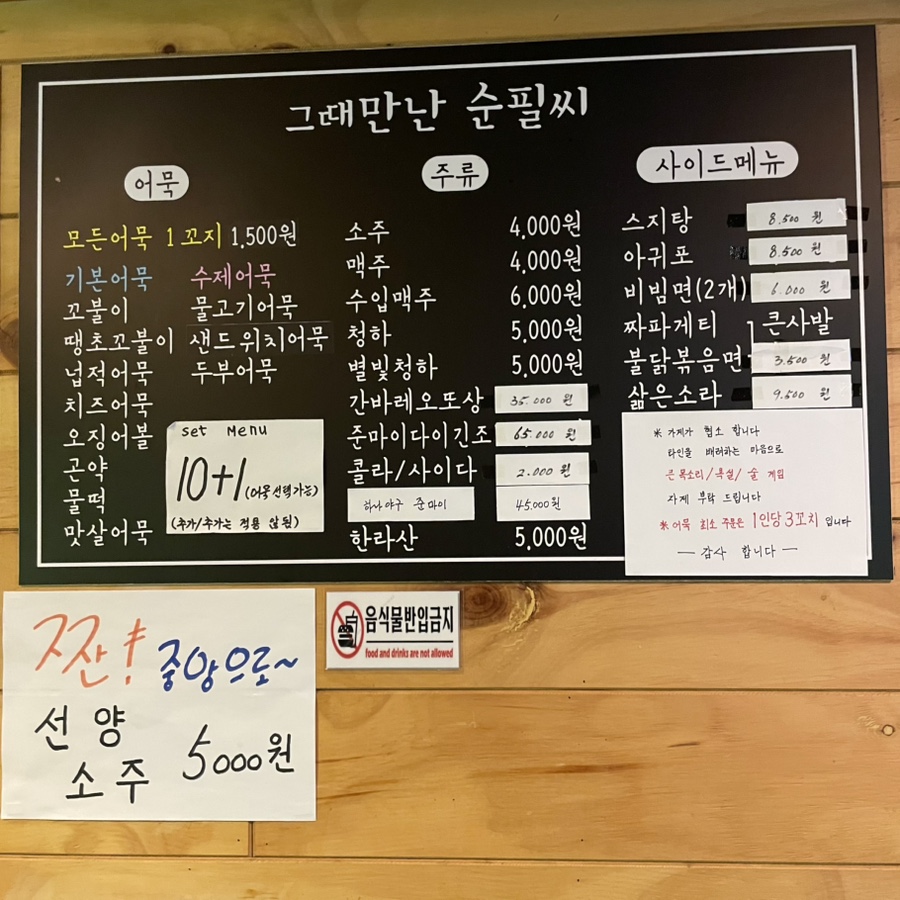 그때만난 순필씨
어묵
모든어묵 1꼬지 1,500원
기본어묵 수제어묵
꼬불이 물고기어묵
땡초꼬불이 샌드위치어묵
넙적어묵 두부어묵
치즈어묵
오징어볼
곤약
물떡
맛살어묵
set Menu
10+1 (어묵선택가능)
(추가/추가는 적용 않됨)
주류
소주 4,000원
맥주 4,000원
수입맥주 6,000원
청하 5,000원
별빛청하 5,000원
간바레오또상 35.000 원
준마이다이긴조 65.000 원
콜라/사이다 2.000 원
준마이 45000원
한라산 5,000원
사이드메뉴
스지탕 8.500 원
아귀포 8.500 원
비빔면(2개) 6.000 원
짜파게티 큰사발
불닭볶음면 3.500 원
삶은소라 9.500 원
※ 가게가 협소 합니다
타인을 배려하는 마음으로
큰 목소리/욕설/술 게임
자제 부탁 드립니다
※ 어묵 최소 주문은 1인당 3꼬치 입니다
— 감사 합니다 —
음식물반입금지
food and drinks are not allowed
짠! 중앙으로~
선양
소주 5000원